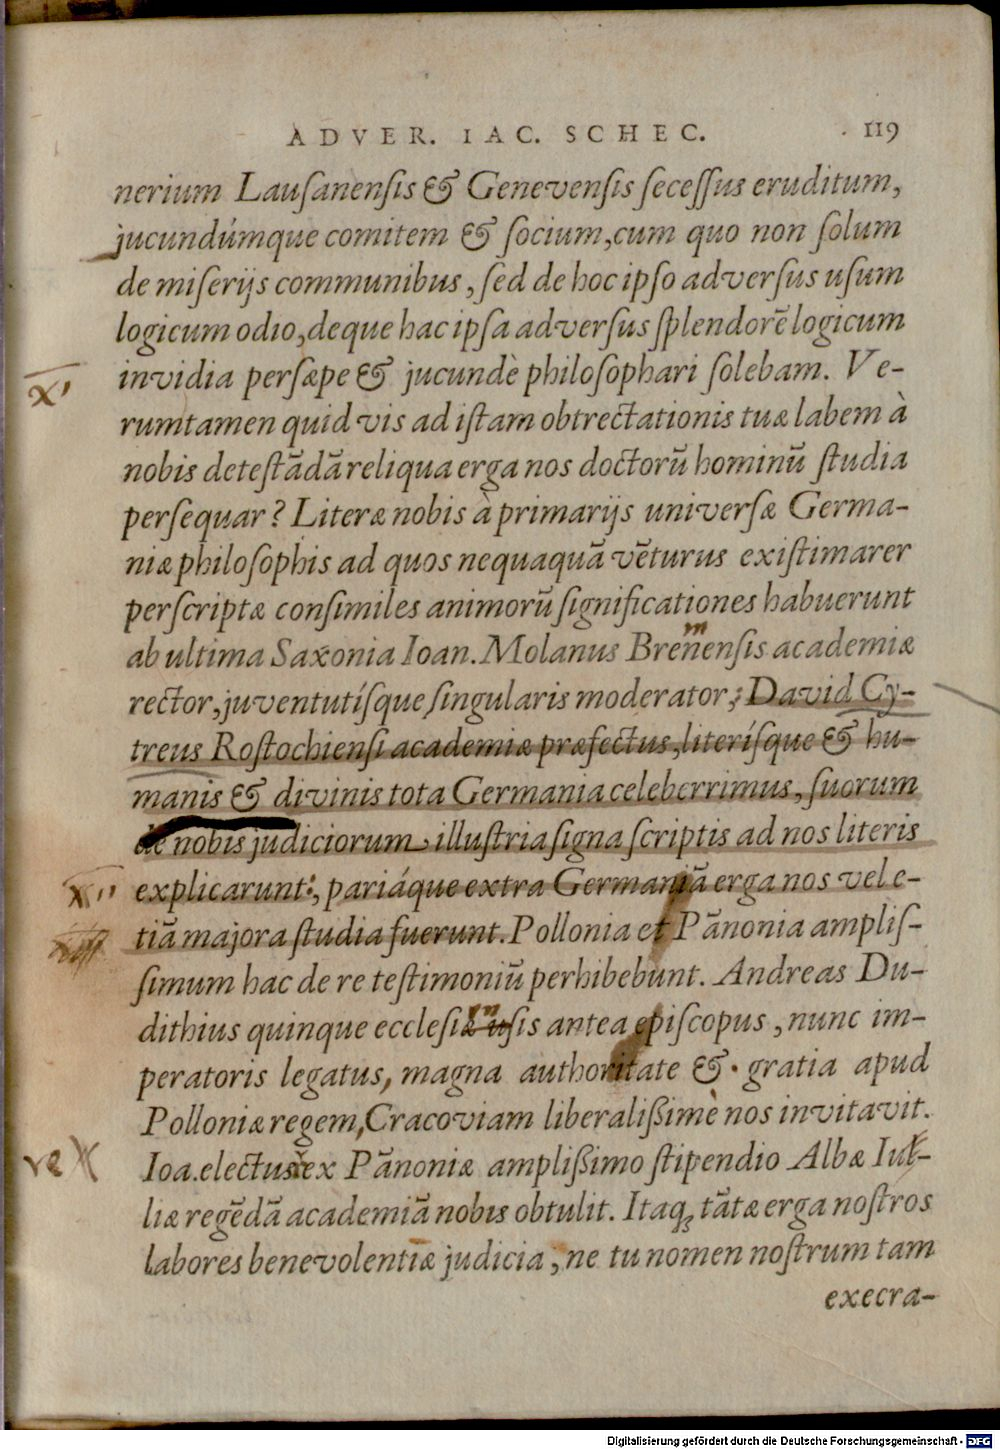 ADVER. IAC. SCHEC. 119
nerium Lauſanenſis & Genevenſis ſeceſſus eruditum,
jucundúmque comitem & ſocium, cum quo non ſolum
de miſerijs communibus, ſed de hoc ipſo adverſus uſum
logicum odio, deque hac ipſa adverſus ſplendorē logicum
invidia perſæpe & jucundè philoſophari ſolebam. Ve-
rumtamen quid vis ad iſtam obtrectationis tuæ labem à
nobis deteſtādā reliqua erga nos doctorū hominū ſtudia
perſequar? Literæ nobis à primarijs univerſæ Germa-
niæ philoſophis ad quos nequaquā vēturus exiſtimarer
perſcriptæ conſimiles animorū ſignificationes habuerunt
ab ultima Saxonia Ioan. Molanus Brenenſis academiæ
m
rector, juventutíſque ſingularis moderator,: David Cy-
treus Roſtochienſi academiæ præfectus, literíſque & hu-
manis & divinis tota Germania celeberrimus, ſuorum
de nobis judiciorum illuſtria ſigna ſcriptis ad nos literis
explicarunt:, pariáque extra Germaniā erga nos vel e-
tiā majora ſtudia fuerunt. Pollonia et Pānonia ampliſ-
ſimum hac de re teſtimoniū perhibebunt. Andreas Du-
dithius quinque eccleſiæ uſis antea epiſcopus, nunc im-
peratoris legatus, magna authoritate & gratia apud
Polloniæ regem, Cracoviam liberalißimè nos invitavit.
Ioa. electus rex Pānoniæ amplißimo ſtipendio Albæ Iul-
liæ regēdā academiā nobis obtulit. Itaq; tātæ erga noſtros
labores benevolentiæ judicia, ne tu nomen noſtrum tam
execra-
Digitalisierung gefördert durch die Deutsche Forschungsgemeinschaft - DFG